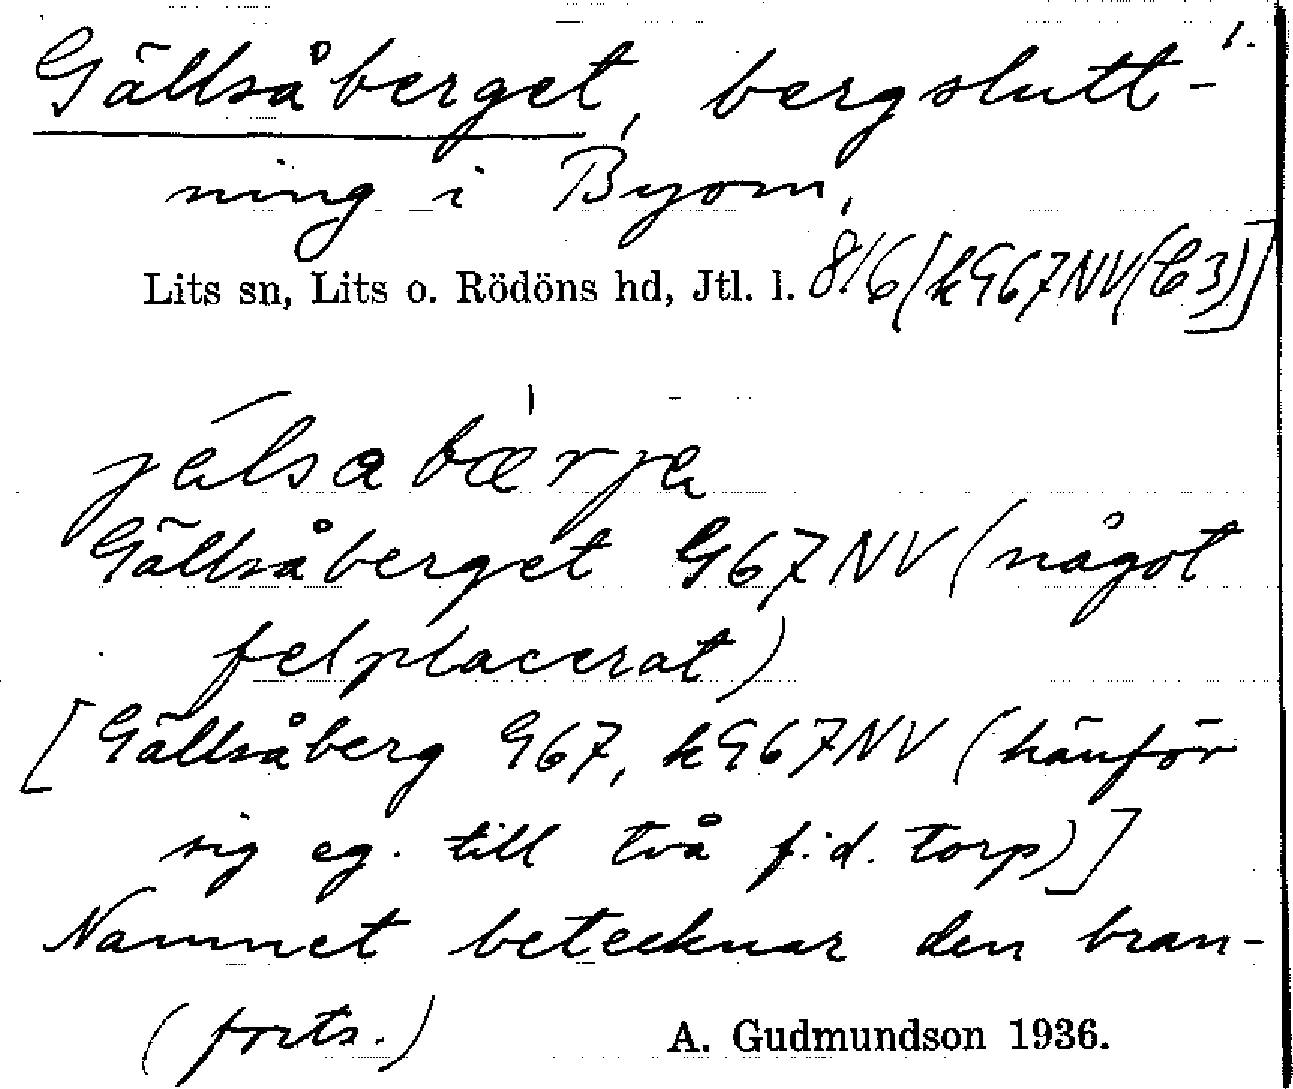 1.
Gällsåberget, bergslutt-
ning i Byom,
Lits sn, Lits o. Rödöns hd, Jtl. l. 8/6 [kG67NV(C3)]
jälsabærje
Gällsåberget G67NV (något
felplacerat)
[Gällsåberg G67, kG67NV (hänför
sig eg. till två f.d. torp)]
Namnet betecknar den bran-
(forts.) A. Gudmundson 1936.